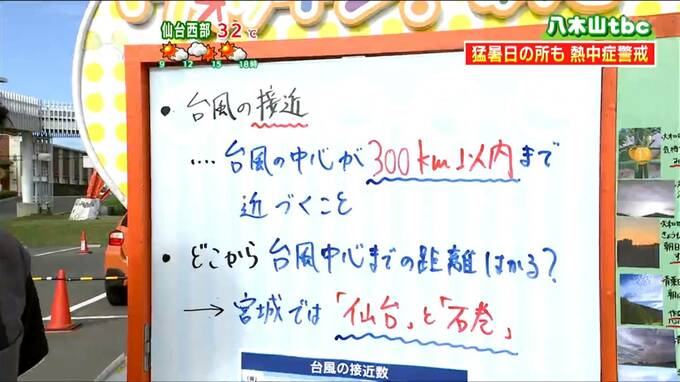 仙台西部 32℃
9 12 15 18時
八木山tbc
猛暑日の所も 熱中症警戒
・台風の接近
‥‥台風の中心が300km以内まで
近づくこと
・どこから台風中心までの距離はかる?
→宮城では「仙台」と「石巻」
台風の接近数